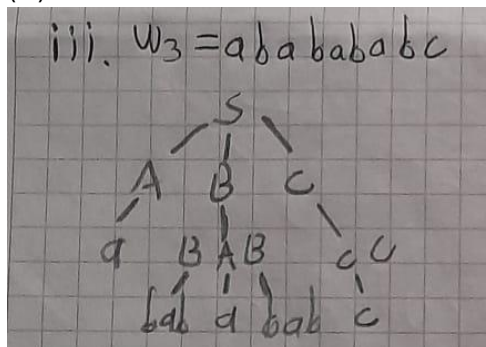 iii. W3 = abababab c
S
A B C
a B A B c C
bab a bab c